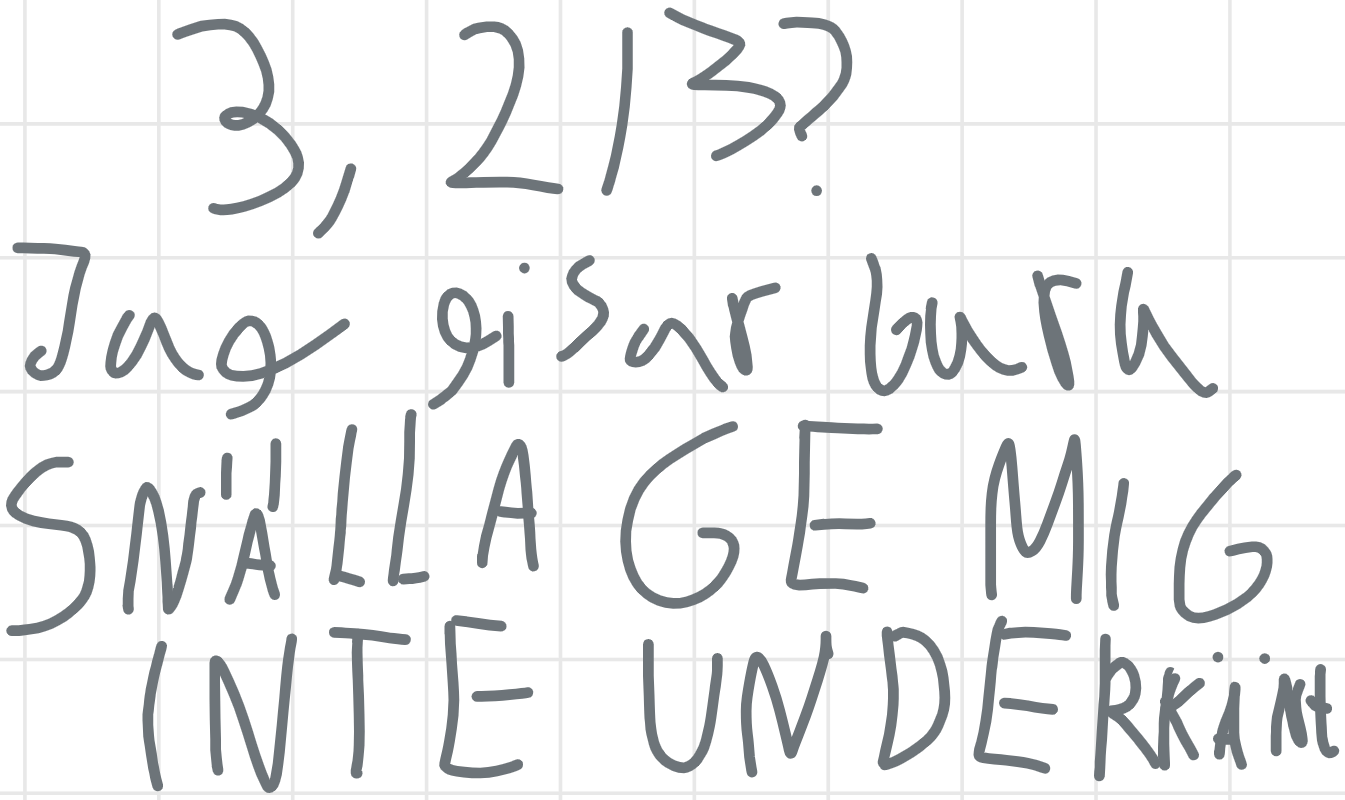 3,213?
Jag gisar bara
SNÄLLA GE MIG
INTE UNDERKÄNT